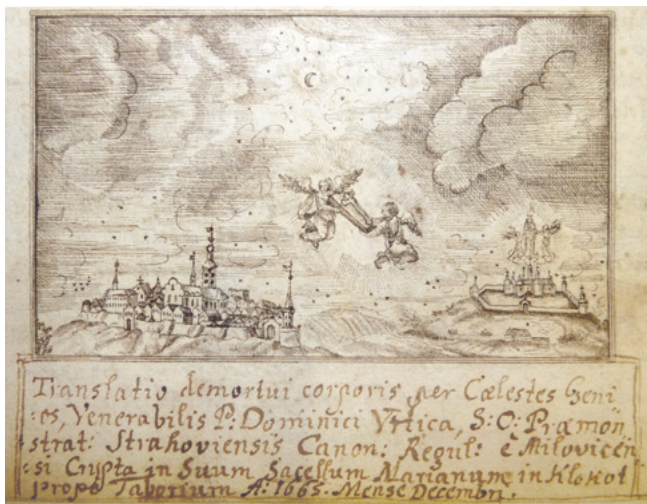 Translatio demortui corporis per Cælestes Geni-
:es, Venerabilis P: Dominici Vrtica, S: O: Præmon
strat: Strahoviensis Canon: Regul: è Milovicen
si Crypta in Suum Sacellum Marianum in Klokot
prope Taborium A: 1665: Mense Decemb: